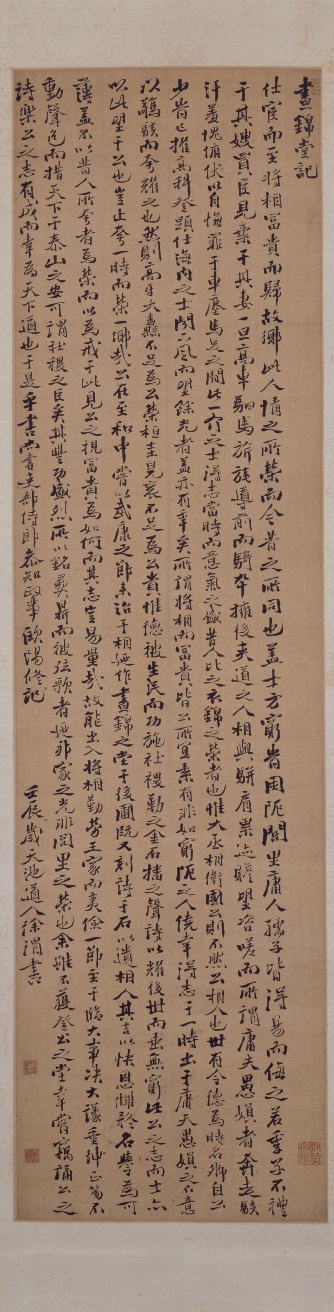 晝錦堂記
仕宦而至將相富貴而歸故鄉此人情之所榮而今昔之所同也蓋士方窮時困阨閭里庸人孺子皆得易而侮之若季子不禮
于其嫂買臣見棄于其妻一旦高車駟馬旂旄導前而騎卒擁後夾道之人相與駢肩累迹瞻望咨嗟而所謂庸夫愚婦者奔走駭
汗羞愧俯伏以自悔罪于車塵馬足之間此一介之士得志當時而意氣之盛昔人比之衣錦之榮者也惟大丞相衛國公則不然公相人也世有令德為時名卿自公
少時已擢高科登顯仕海內之士聞下風而望餘光者蓋亦有年矣所謂將相而富貴皆公所宜素有非如窮阨之人僥幸得志于一時出于庸夫愚婦之不意
以驚駭而夸耀之也然則高牙大纛不足為公榮桓圭袞冕不足為公貴惟德被生民而功施社稷勒之金石播之聲詩以耀後世而垂無窮此公之志而士亦
以此望于公也豈止夸一時而榮一鄉哉公在至和中嘗以武康之節來治于相廼作晝錦之堂于後圃既又刻詩于石以遺相人其言以快恩讎矜名譽為可
薄蓋不以昔人所夸者為榮而以為戒于此見公之視富貴為如何而其志豈易量哉故能出入將相勤勞王家而夷險一節至于臨大事決大議垂紳正笏不
動聲色而措天下于泰山之安可謂社稷之臣矣其豐功盛烈所以銘彝鼎而被弦歌者廼邦家之光非閭里之榮也余雖不獲登公之堂幸嘗竊誦公之
詩樂公之志有成而幸為天下道也于是乎書尚書吏部侍郎參知政事歐陽修記
壬辰歲天池道人徐渭書